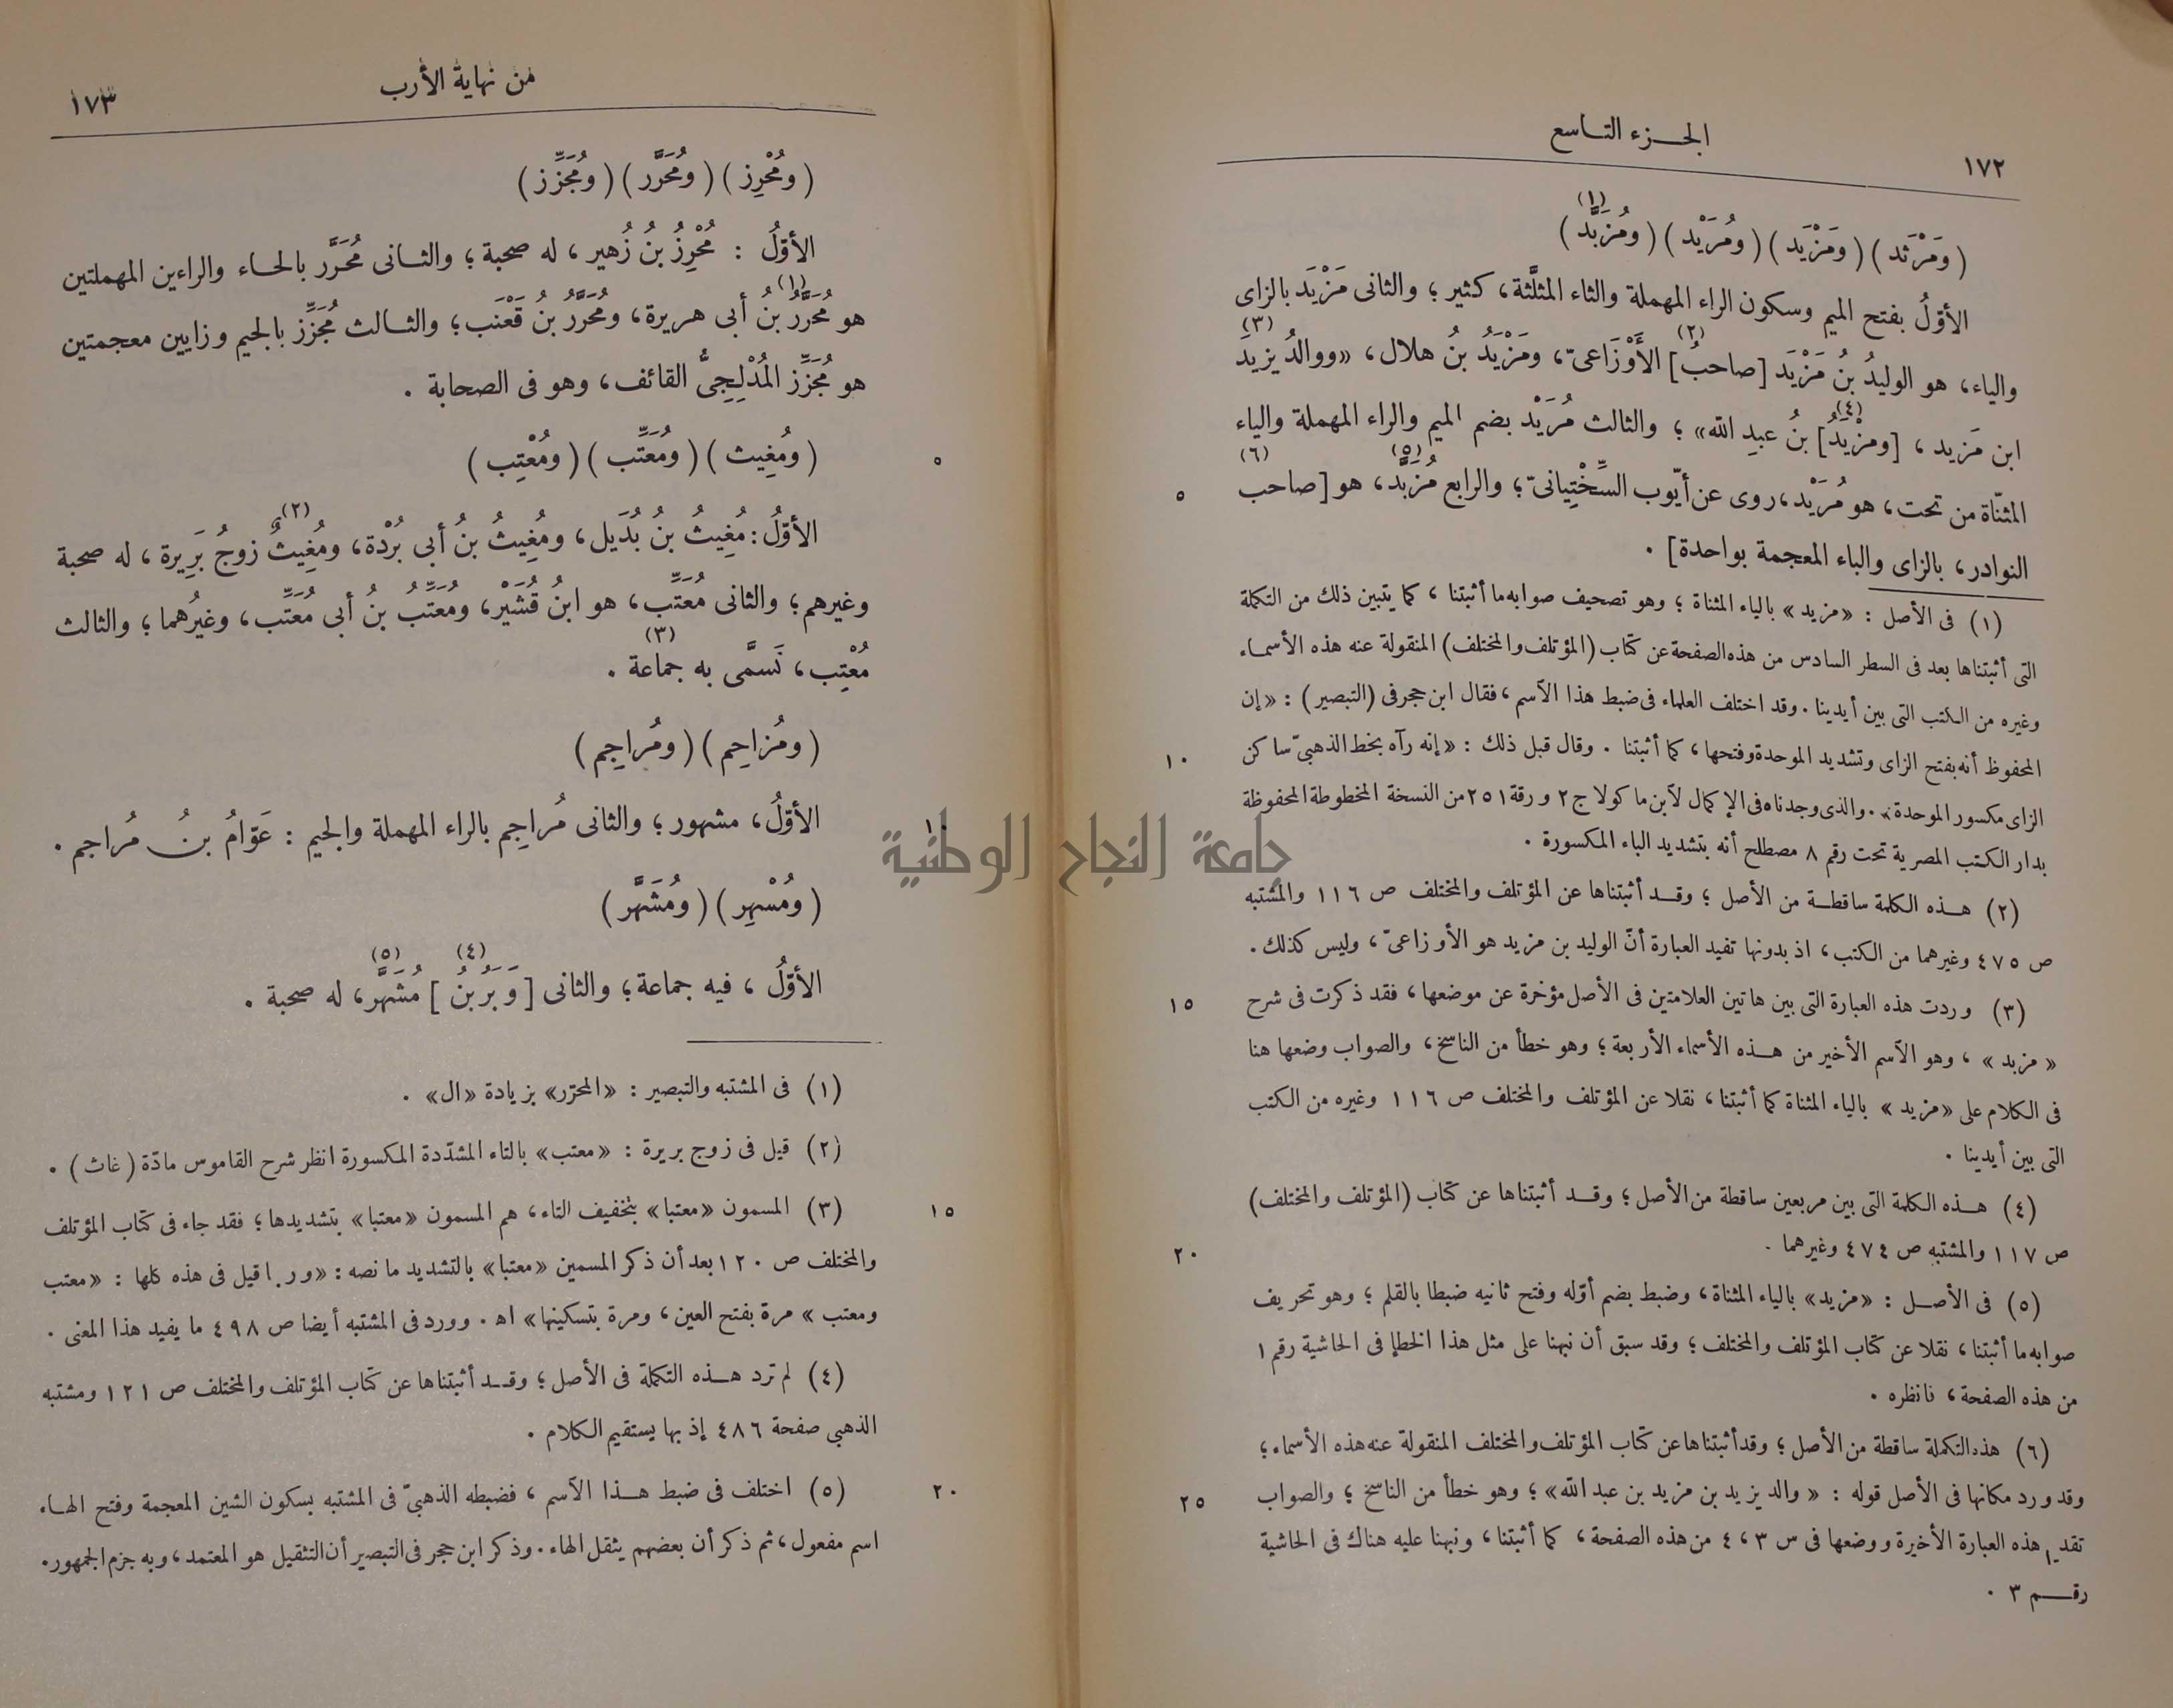 الجزء التاسع
١٧٢
(ومَرْثَد) (ومَزْيَد) (ومُرَيْد) (ومُزَبَّد)(١)
الأوّلُ بفتح الميم وسكون الراء المهملة والثاء المثلَّثة، كثير؛ والثانى مَزْيَد بالزاى
والياء، هو الوليدُ بنُ مَزْيَد [صاحبُ](٢) الأَوْزَاعىّ، ومَزْيَدُ بنُ هلال، «ووالدُ يزيدَ(٣)
ابن مَزيد، [ومزْيَدُ](٤) بنُ عبدِ الله»؛ والثالث مُرَيْد بضم الميم والراء المهملة والياء
المثنّاة من تحت، هو مُرَيْد، روى عن أيّوب السِّخْتِيانىّ؛ والرابع مُزَبَّد(٥)، هو [صاحب(٦)
٥
النوادر، بالزاى والباء المعجمة بواحدة].
(١) فى الأصل : «مزيد» بالياء المثناة؛ وهو تصحيف صوابه ما أثبتنا، كما يتبين ذلك من التكملة
التى أثبتناها بعد فى السطر السادس من هذه الصفحة عن كتاب (المؤتلف والمختلف) المنقولة عنه هذه الأسماء
وغيره من الكتب التى بين أيدينا. وقد اختلف العلماء فى ضبط هذا الآسم، فقال ابن حجر فى (التبصير) : «إن
المحفوظ أنه بفتح الزاى وتشديد الموحدة وفتحها، كما أثبتنا. وقال قبل ذلك : «إنه رآه بخط الذهبىّ ساكن
١٠
الزاى مكسور الموحدة». والذى وجدناه فى الإكمال لآبن ماكولا ج ٢ ورقة ٢٥١ من النسخة المخطوطة المحفوظة
بدار الكتب المصرية تحت رقم ٨ مصطلح أنه بتشديد الباء المكسورة.
(٢) هذه الكلمة ساقطة من الأصل؛ وقد أثبتناها عن المؤتلف والمختلف ص ١١٦ والمشتبه
ص ٤٧٥ وغيرهما من الكتب، اذ بدونها تفيد العبارة أنّ الوليد بن مزيد هو الأوزاعىّ، وليس كذلك.
(٣) وردت هذه العبارة التى بين هاتين العلامتين فى الأصل مؤخرة عن موضعها، فقد ذكرت فى شرح
١٥
«مزبد»، وهو الآسم الأخير من هذه الأسماء الأربعة؛ وهو خطأ من الناسخ، والصواب وضعها هنا
فى الكلام على «مزيد» بالياء المثناة كما أثبتنا، نقلا عن المؤتلف والمختلف ص ١١٦ وغيره من الكتب
التى بين أيدينا.
(٤) هذه الكلمة التى بين مربعين ساقطة من الأصل؛ وقد أثبتناها عن كتاب (المؤتلف والمختلف)
ص ١١٧ والمشتبه ص ٤٧٤ وغيرهما.
٢٠
(٥) فى الأصل : «مزيد» بالياء المثناة، وضبط بضم أوّله وفتح ثانيه ضبطا بالقلم؛ وهو تحريف
صوابه ما أثبتنا، نقلا عن كتاب المؤتلف والمختلف؛ وقد سبق أن نبهنا على مثل هذا الخطإ فى الحاشية رقم ١
من هذه الصفحة، فانظره.
(٦) هذه التكملة ساقطة من الأصل؛ وقد أثبتناها عن كتاب المؤتلف والمختلف المنقولة عنه هذه الأسماء؛
وقد ورد مكانها فى الأصل قوله : «والد يزيد بن مزيد بن عبد الله»؛ وهو خطأ من الناسخ؛ والصواب
٢٥
تقديم هذه العبارة الأخيرة ووضعها فى س ٣، ٤ من هذه الصفحة، كما أثبتنا، ونبهنا عليه هناك فى الحاشية
رقم ٣.
من نهاية الأرب
١٧٣
(ومُحْرِز) (ومُحَرَّر) (ومُجَزِّز)
الأوّلُ : مُحْرِزُ بنُ زُهير، له صحبة؛ والثانى مُحَرَّر بالحاء والراءين المهملتين
هو مُحَرَّرُ(١) بنُ أبى هريرة، ومُحَرَّرُ بنُ قَعْنَب؛ والثالث مُجَزِّز بالجيم وزايين معجمتين
هو مُجَزِّز المُدْلِجِىُّ القائف، وهو فى الصحابة.
(ومُغِيث) (ومُعَتِّب) (ومُعْتِب)
٥
الأوّلُ : مُغِيثُ بنُ بُدَيل، ومُغِيثُ بنُ أبى بُرْدة، ومُغِيثٌ(٢) زوجُ بَرِيرة، له صحبة
وغيرهم؛ والثانى مُعَتِّب، هو ابنُ قُشَيْر، ومُعَتِّبُ بنُ أبى مُعَتِّب، وغيرُهما؛ والثالث
مُعْتِب، تَسمَّى به جماعة(٣).
(ومُزاحِم) (ومُراجِم)
الأوّلُ، مشهور؛ والثانى مُراجِم بالراء المهملة والجيم : عَوّامُ بنُ مُراجم.
١٠
(ومُسْهِر) (ومُشَهَّر)
الأوّلُ، فيه جماعة؛ والثانى [وَبَرُ بنُ](٤) مُشَهَّر(٥)، له صحبة.
(١) فى المشتبه والتبصير : «المحرّر» بزيادة «ال».
(٢) قيل فى زوج بريرة : «معتب» بالتاء المشدّدة المكسورة انظر شرح القاموس مادّة (غاث).
(٣) المسمون «معتبا» بتخفيف التاء، هم المسمون «معتبا» بتشديدها؛ فقد جاء فى كتاب المؤتلف
١٥
والمختلف ص ١٢٠ بعد أن ذكر المسمين «معتبا» بالتشديد ما نصه : «وربما قيل فى هذه كلها : «معتب
ومعتب» مرة بفتح العين، ومرة بتسكينها» اه. وورد فى المشتبه أيضا ص ٤٩٨ ما يفيد هذا المعنى.
(٤) لم ترد هذه التكملة فى الأصل؛ وقد أثبتناها عن كتاب المؤتلف والمختلف ص ١٢١ ومشتبه
الذهبى صفحة ٤٨٦ إذ بها يستقيم الكلام.
(٥) اختلف فى ضبط هذا الآسم، فضبطه الذهبىّ فى المشتبه بسكون الشين المعجمة وفتح الهاء،
٢٠
اسم مفعول، ثم ذكر أن بعضهم يثقل الهاء. وذكر ابن حجر فى التبصير أن التثقيل هو المعتمد، وبه جزم الجمهور.
جامعة النجاح الوطنية